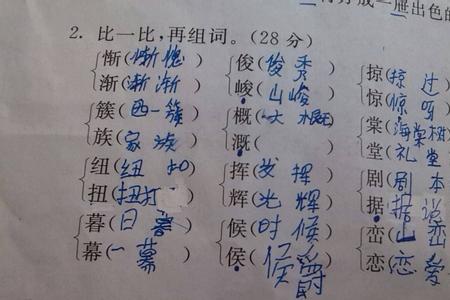 出色的
2. 比一比,再组词。(28分)
惭(惭愧) 俊(俊秀) 掠(掠过
渐(渐渐) 峻(山峻) 惊(惊呀
簇(西一簇) 概(大概) 棠(海棠树
族(家族) 溉( ) 堂(礼堂
纽(纽扣) 挥(发挥) 剧(剧本
扭(扭打 辉(光辉) 据(据说
暮(日暮) 候(时候) 峦(山峦
幕(一幕) 侯(侯爵 恋(恋爱